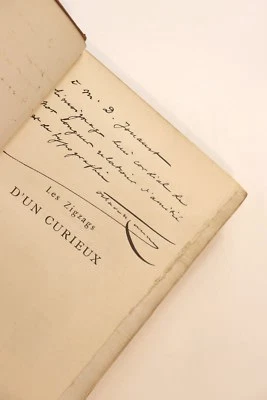 à M. D. Jouaust
témoignage bien cordial de
nos longues relations d'amitié
et de typographie
Octave Uzanne
Les Zigzags
D'UN CURIEUX